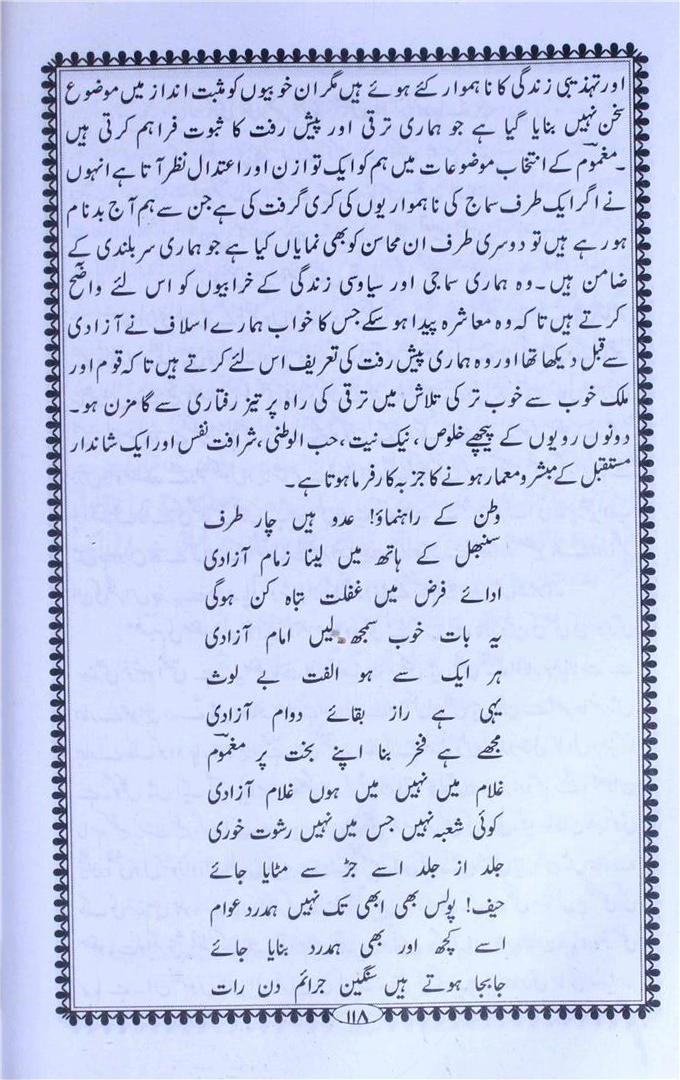 اور تہذیبی زندگی کا ناہموار کئے ہوئے ہیں مگر ان خوبیوں کو مثبت انداز میں موضوع
سخن نہیں بنایا گیا ہے جو ہماری ترقی اور پیش رفت کا ثبوت فراہم کرتی ہیں
۔ مغموم کے انتخاب موضوعات میں ہم کو ایک توازن اور اعتدال نظر آتا ہے انہوں
نے اگر ایک طرف سماج کی ناہمواریوں کی کری گرفت کی ہے جن سے ہم آج بدنام
ہورہے ہیں تو دوسری طرف ان محاسن کو بھی نمایاں کیا ہے جو ہماری سربلندی کے
ضامن ہیں۔ وہ ہماری سماجی اور سیاوسی زندگی کے خرابیوں کو اس لئے واضح
کرتے ہیں تاکہ وہ معاشرہ پیدا ہوسکے جس کا خواب ہمارے اسلاف نے آزادی
سے قبل دیکھا تھا اور وہ ہماری پیش رفت کی تعریف اس لئے کرتے ہیں تاکہ قوم اور
ملک خوب سے خوب تر کی تلاش میں ترقی کی راہ پر تیز رفتاری سے گامزن ہو۔
دونوں رویوں کے پیچھے خلوص، نیک نیت، حب الوطنی، شرافت نفس اور ایک شاندار
مستقبل کے مبشر و معمار ہونے کا جزبہ کارفرما ہوتا ہے۔
وطن کے راہنماؤ! عدو ہیں چار طرف
سنبھل کے ہاتھ میں لینا زمام آزادی
ادائے فرض میں غفلت تباہ کن ہوگی
یہ بات خوب سمجھ لیں امام آزادی
ہر ایک سے ہو الفت بے لوث
یہی ہے راز بقائے دوام آزادی
مجھے ہے فخر بنا اپنے بخت پر مغموم
غلام میں نہیں میں ہوں غلام آزادی
کوئی شعبہ نہیں جس میں نہیں رشوت خوری
جلد از جلد اسے جڑ سے مٹایا جائے
حیف! پولس بھی ابھی تک نہیں ہمدرد عوام
اسے کچھ اور بھی ہمدرد بنایا جائے
جابجا ہوتے ہیں سنگین جرائم دن رات
۱۱۸